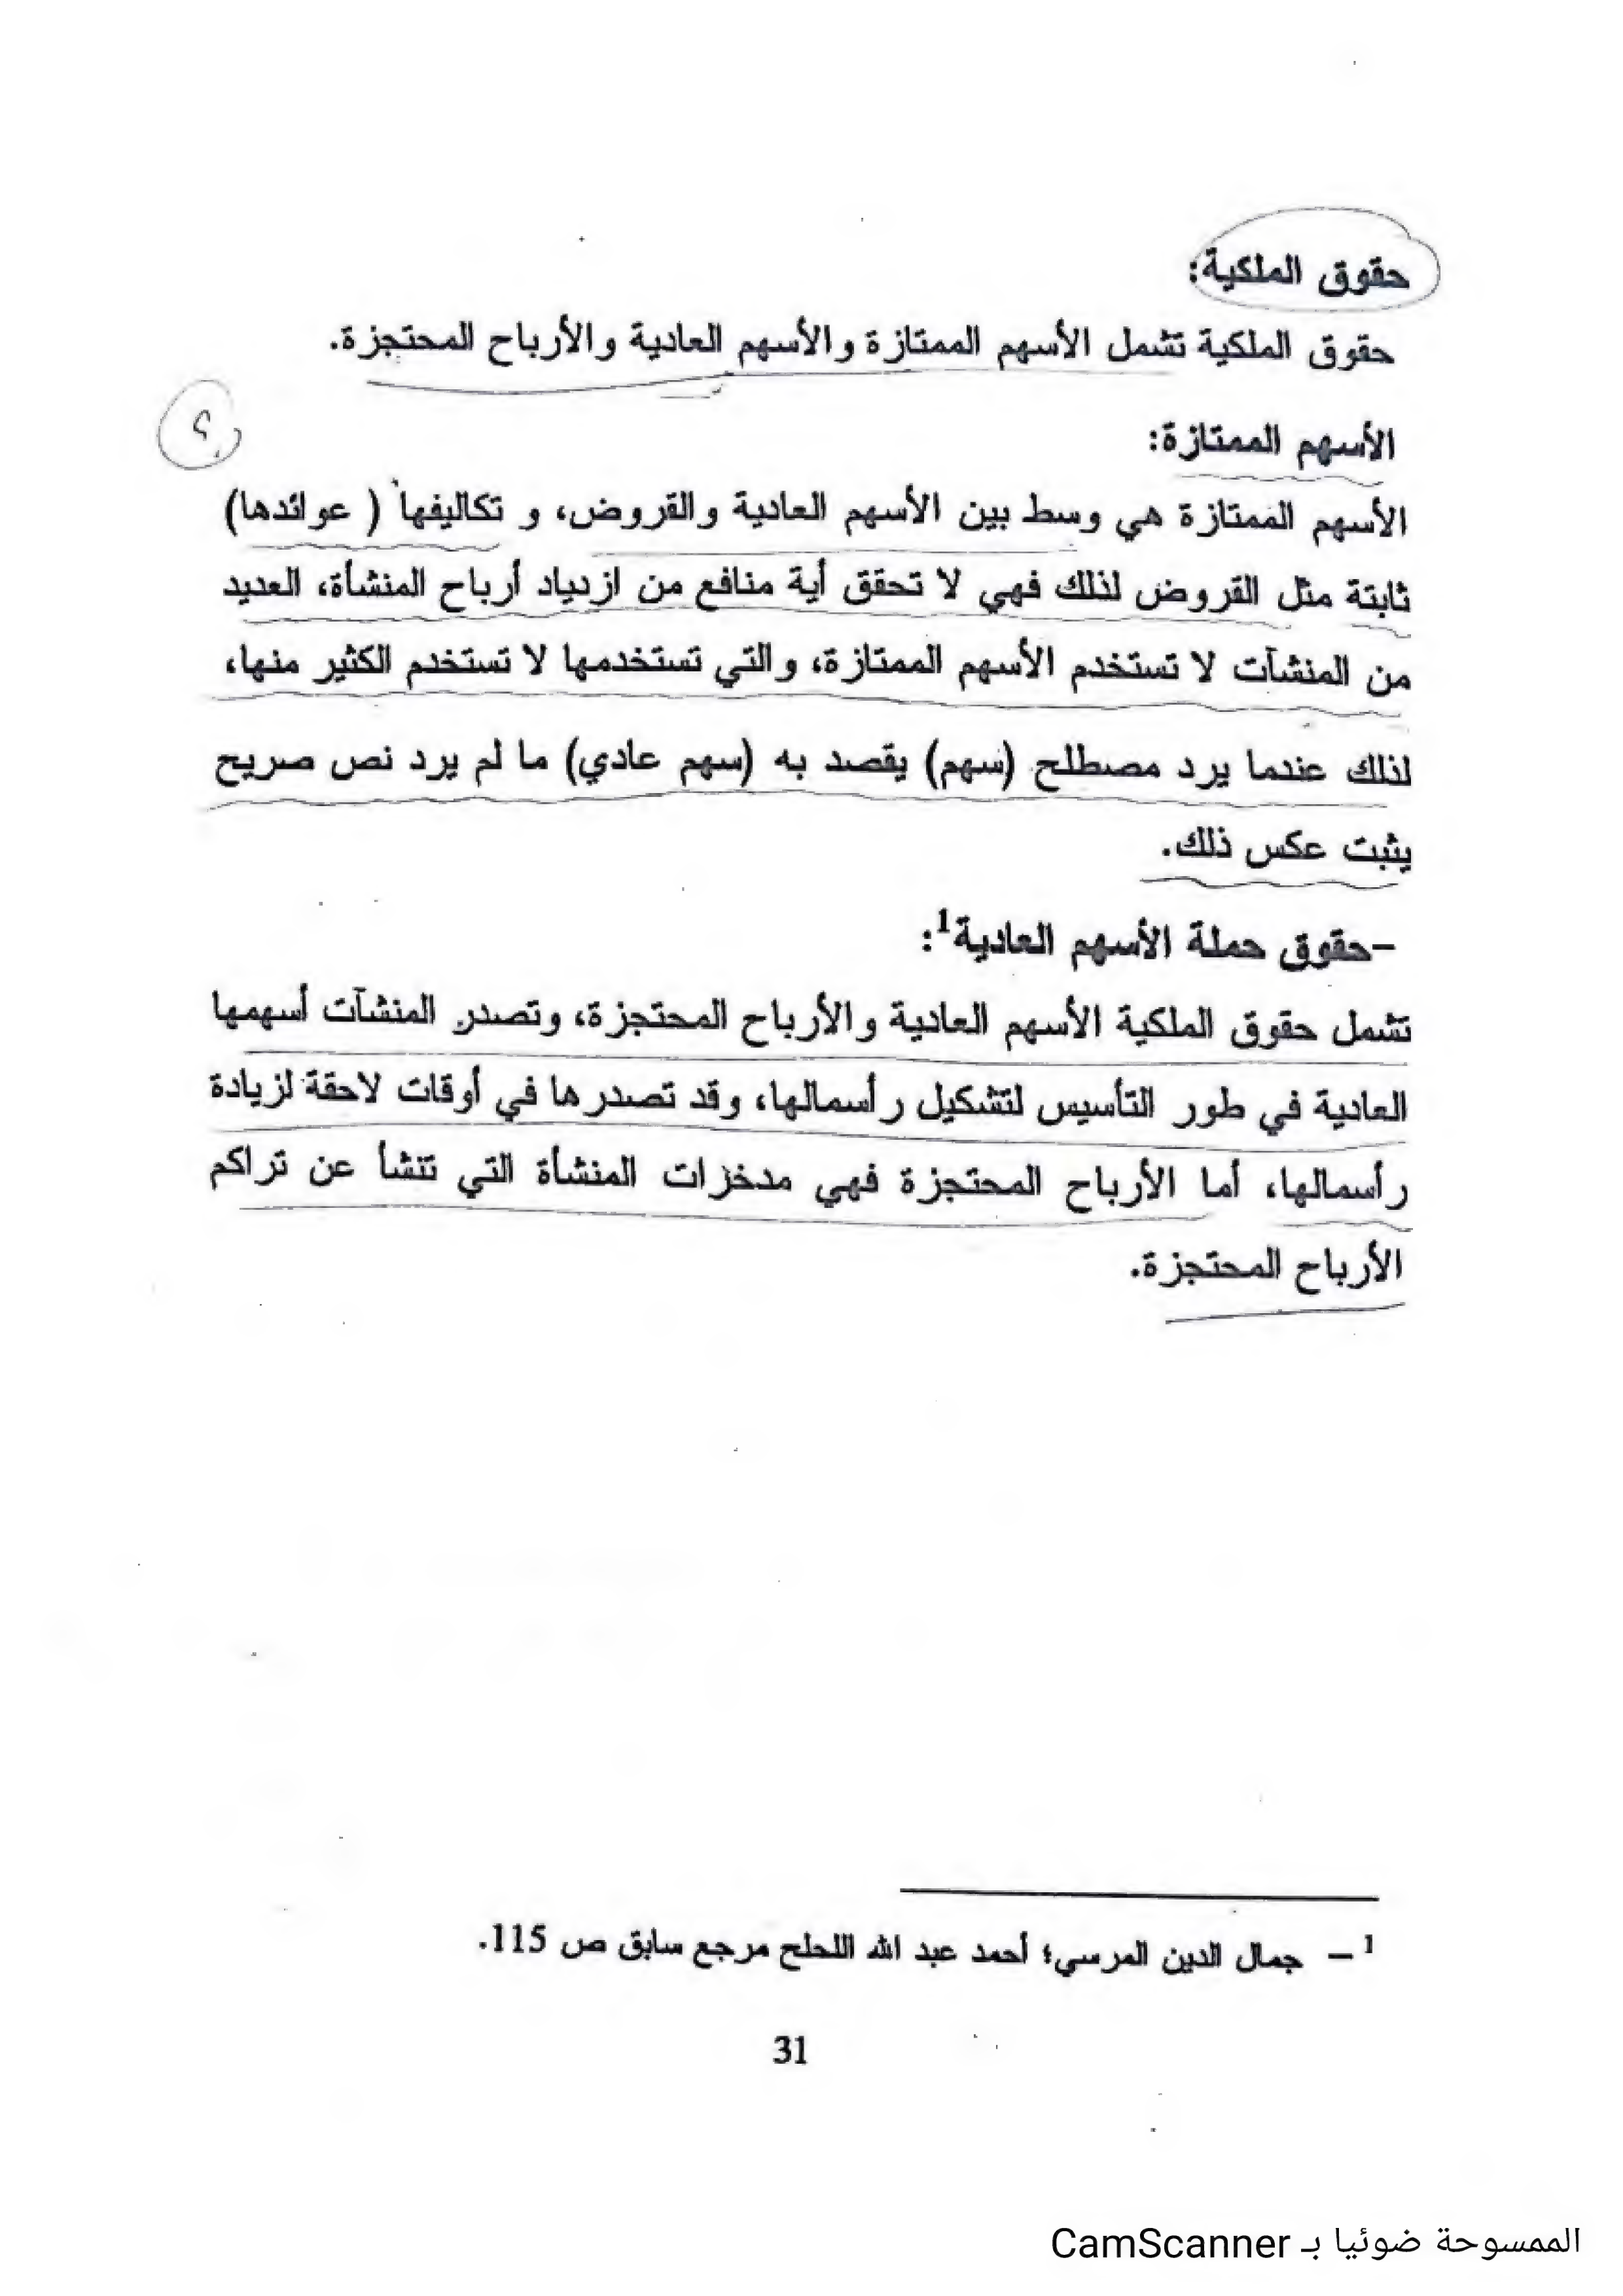 حقوق الملكية:
حقوق الملكية تشمل الأسهم الممتازة والأسهم العادية والأرباح المحتجزة.
؟
الأسهم الممتازة:
الأسهم الممتازة هي وسط بين الأسهم العادية والقروض، و تكاليفها ( عوائدها)
ثابتة مثل القروض لذلك فهي لا تحقق أية منافع من ازدياد أرباح المنشأة، العديد
من المنشآت لا تستخدم الأسهم الممتازة، والتي تستخدمها لا تستخدم الكثير منها،
لذلك عندما يرد مصطلح (سهم) يقصد به (سهم عادي) ما لم يرد نص صريح
يثبت عكس ذلك.
-حقوق حملة الأسهم العادية1:
تشمل حقوق الملكية الأسهم العادية والأرباح المحتجزة، وتصدر المنشآت أسهمها
العادية في طور التأسيس لتشكيل رأسمالها، وقد تصدرها في أوقات لاحقة لزيادة
رأسمالها، أما الأرباح المحتجزة فهي مدخرات المنشأة التي تنشأ عن تراكم
الأرباح المحتجزة.
1 – جمال الدين المرسي؛ أحمد عبد الله اللحلح مرجع سابق ص 115.
31
الممسوحة ضوئيا بـ CamScanner